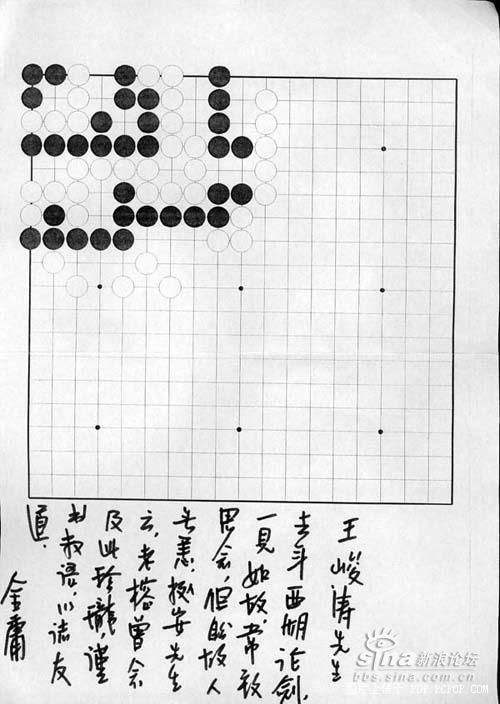 王峻涛先生
去年西湖论剑，
一见如故，常致
思念，但盼故人
无恙。先生
云，老榕曾
及此珍瓏，谨
书数语，以诸友
道。
金庸
sina 新浪论坛
bbs.sina.com.cn